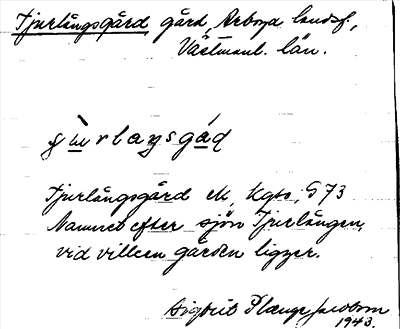 Tjurlångsgård gård, Arboga landsf.,
Västmanl. län.
Tjurlångsgård ek, Kgbo, G73
Namnet efter sjön Tjurlången,
vid vilken gården ligger.
Sigbrit Plænge Jacobson
1943.